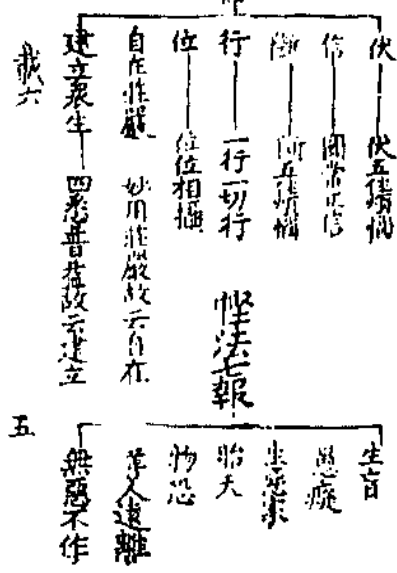 伏 伏五住煩惱
信 圓常正信
斷 斷五住煩惱
行 一行一切行
位 位位相攝
自在莊嚴 妙用莊嚴故云自在
建立衆生 四悉普益故云建立
載六
慳法七報
生盲
愚癡
生惡家
胎夭
物恐
善人遠離
無惡不作
五